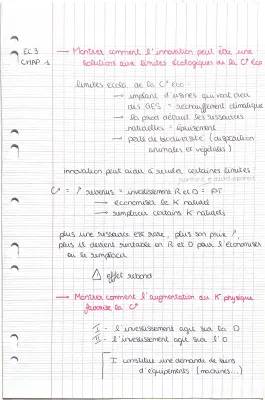 EC3
CHAP 1
→ Montrer comment l'innovation peut être une
solutions aux limites écologiques de la C° éco
limites écolo de la C° éco
→ implant d'usines qui vont avec
des GES = réchauffement climatique
→ la prod détruit les ressources
naturelles = épuisement
→ perte de biodiversité (disparition
animales et végétales)
innovation peut aider à reculer certaines limites :
C° = ↗ revenus = investissement R et D = PT
→ économiser le K naturel
→ remplacer certains K naturels
plus une ressource est rare, plus son prix ↗,
plus il devient rentable en R et D pour l'économiser
ou la remplacer
⚠ effet rebond
→ Montrer comment l'augmentation du K physique
favorise la C°
I - l'investissement agit sur la D
II - l'investissement agit sur l'O
I constitue une demande de biens
d'équipements (machines...)